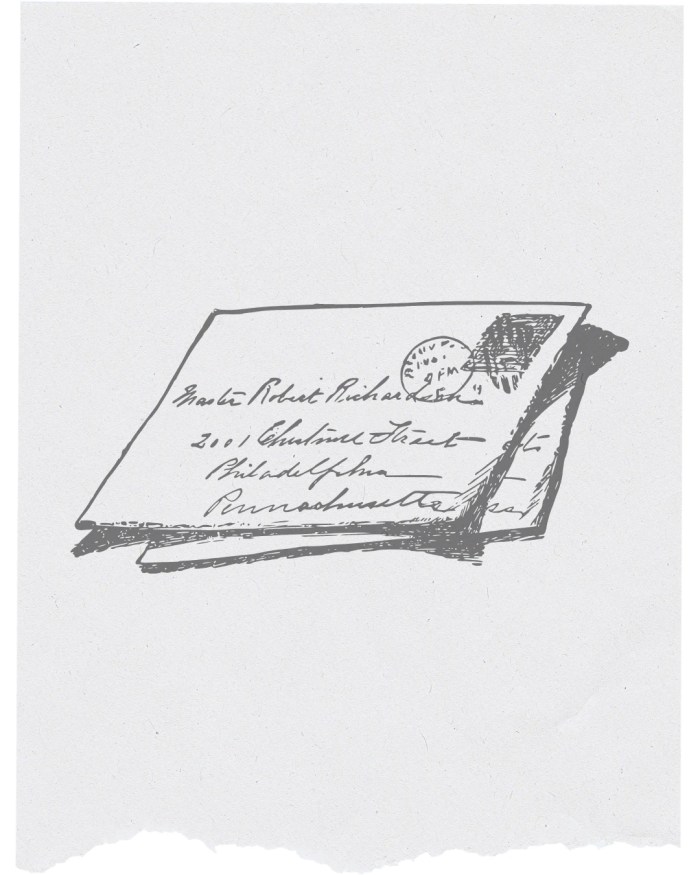 2 PM
Master Robert Richardson
2001 Chestnut Street
Philadelphia
Pennachusetts